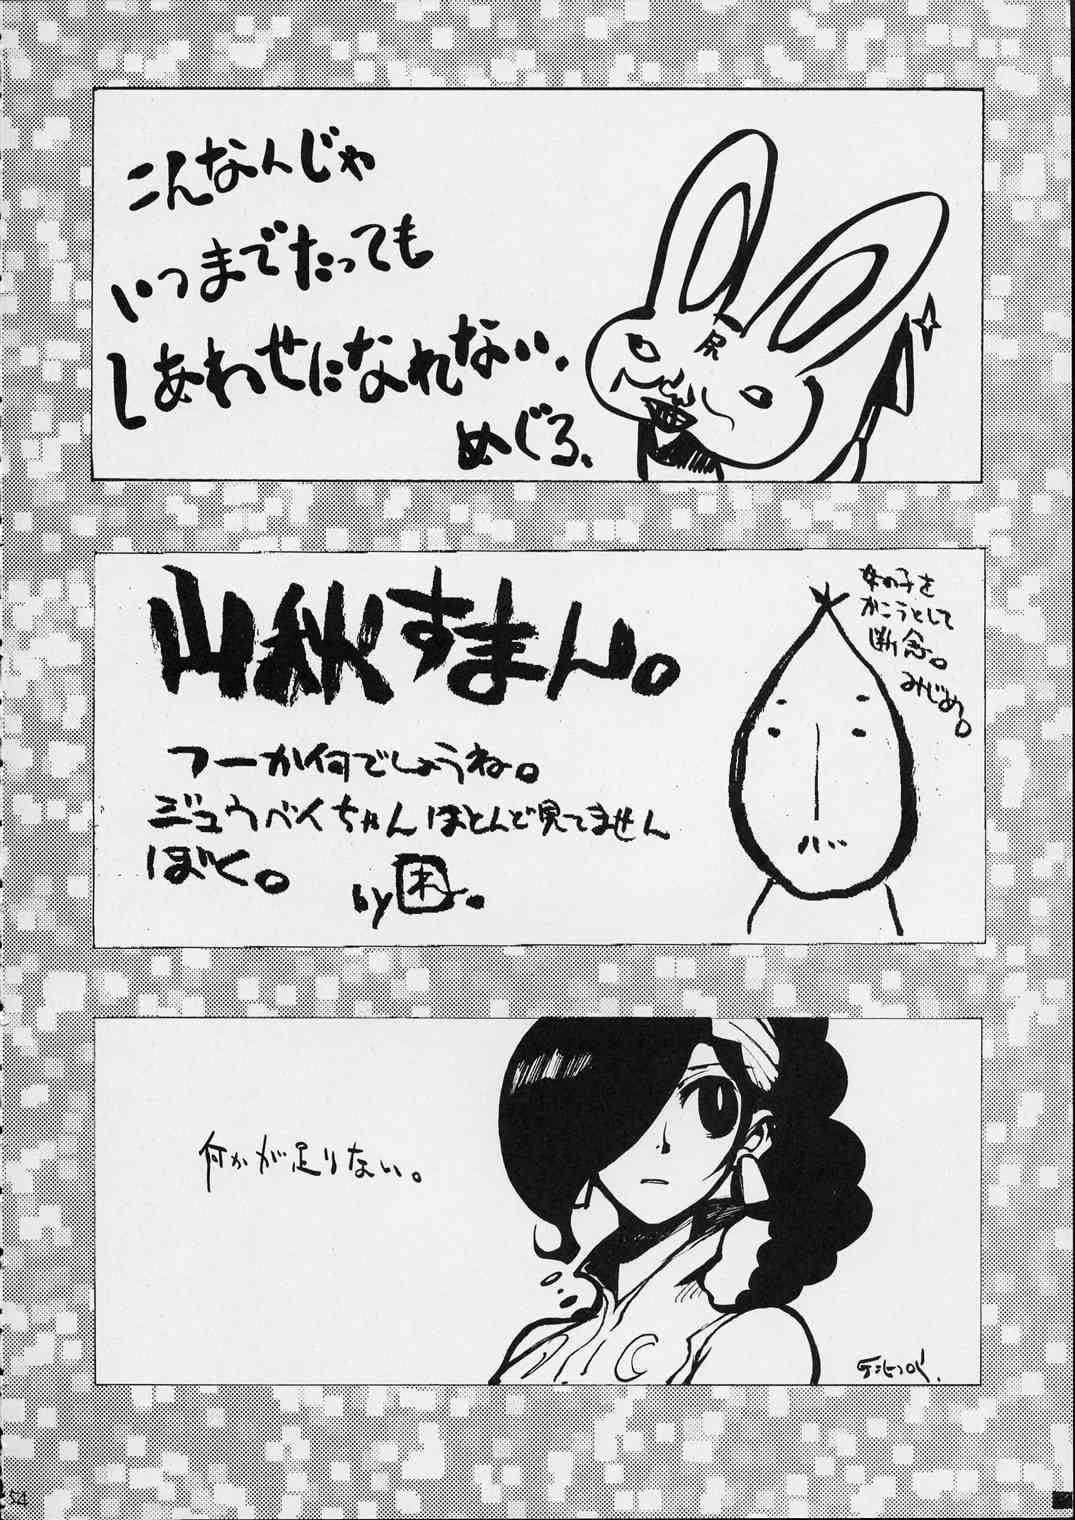 こんなんじゃ
いつまでたっても
しあわせになれない.
めぐろ、
尻
山秋すまん。
女の子を
かこうとして
断念。
みじめ。
フーか何でしょうね。
ジュウベイちゃんほとんど見てません
ぼく。
by困。
何かが足りない。
54